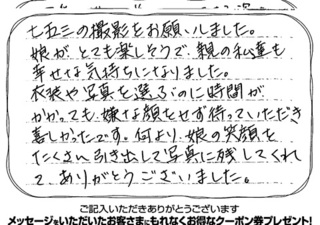 七五三の撮影をお願いしました。
娘が、とても楽しそうで、親の私達も
幸せな気持ちになりました。
衣装や写真を選ぶのに時間が
かかっても、嫌な顔をせず待っていただき
喜しかったです。何より、娘の笑顔を
たくさん引き出して写真に残してくれ
て ありがとうございました。
ご記入いただきありがとうございます
メッセージをいただいたお客さまにもれなくお得なクーポン券プレゼント!